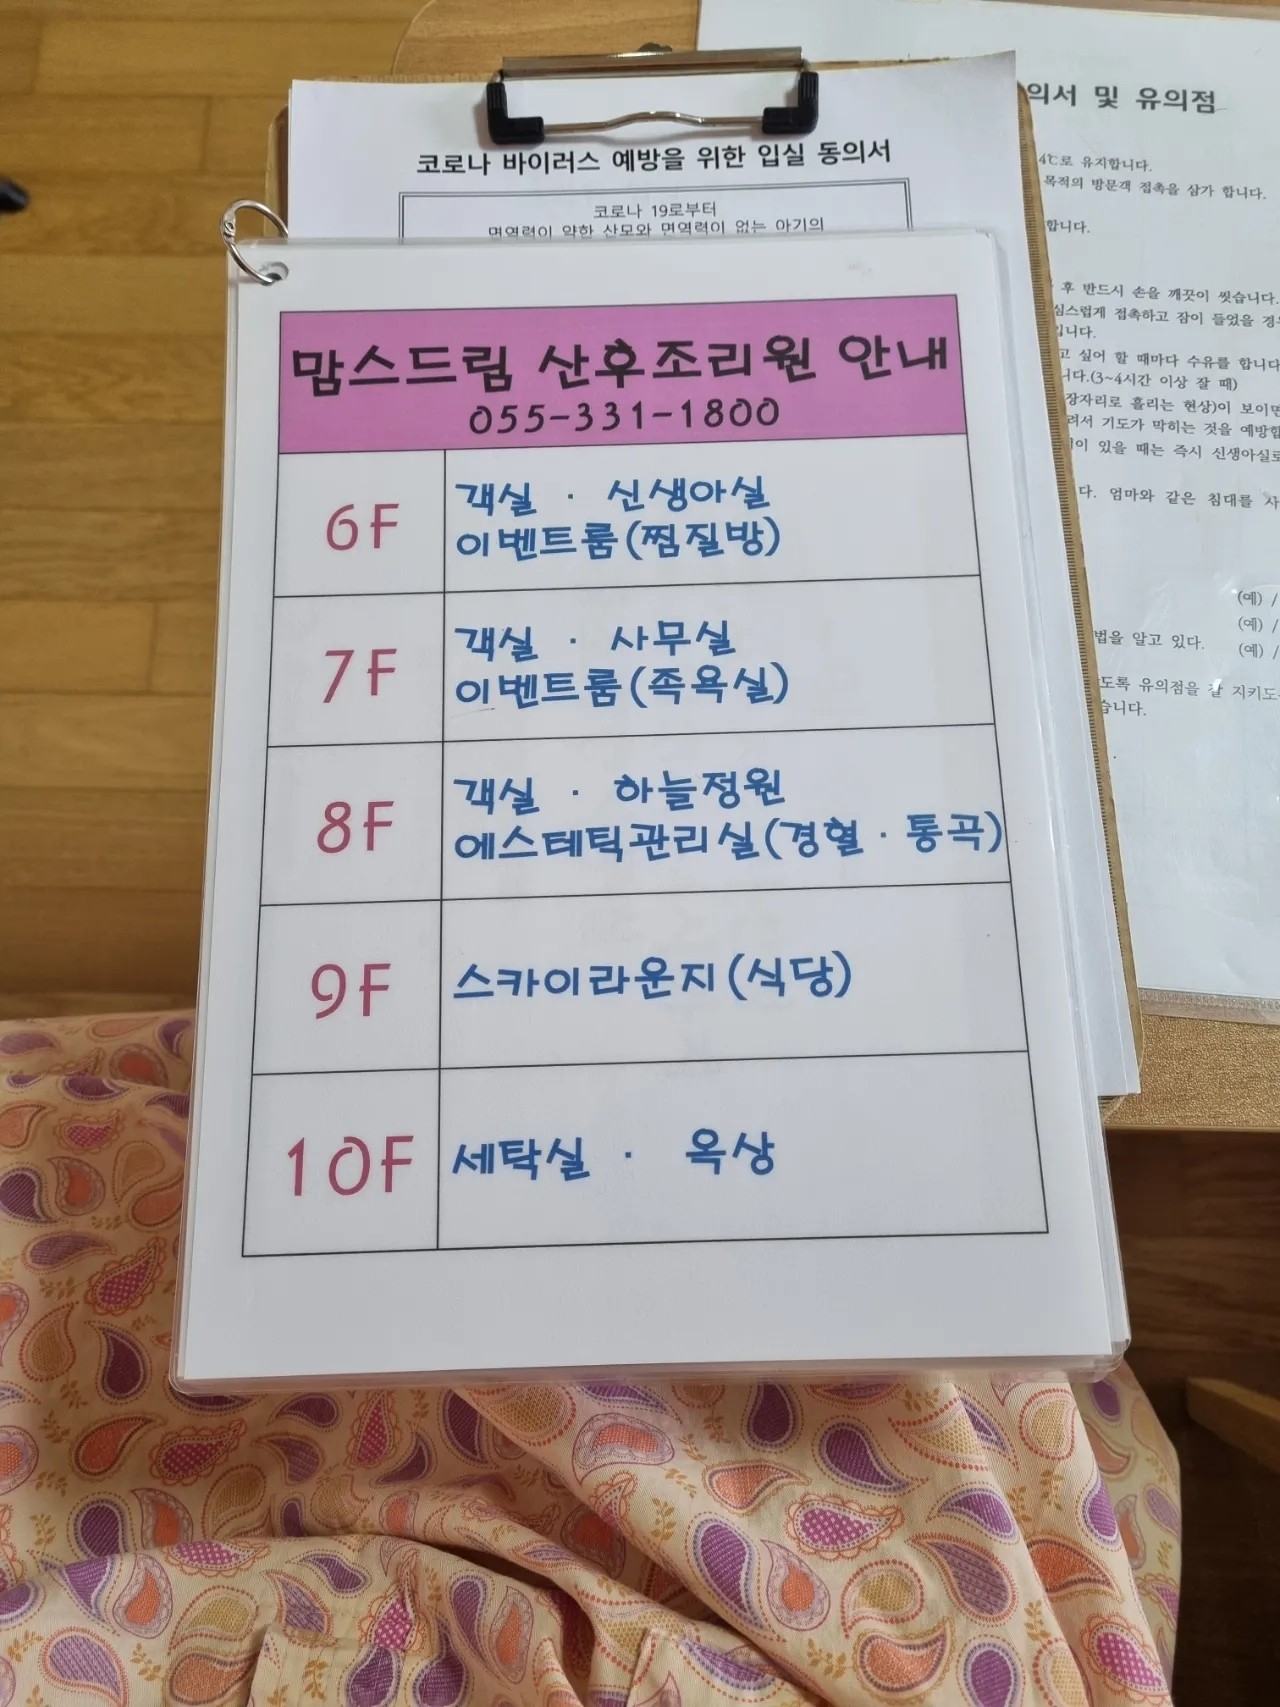 코로나 바이러스 예방을 위한 입실 동의서
코로나 19로부터
면역력이 약한 산모와 면역력이 없는 아기의
맘스드림 산후조리원 안내
055-331-1800
6F
객실 · 신생아실
이벤트룸(찜질방)
7F
객실 · 사무실
이벤트룸(족욕실)
8F
객실 · 하늘정원
에스테틱관리실(경혈 · 통곡)
9F
스카이라운지(식당)
10F
세탁실 · 옥상
의서 및 유의점
4℃로 유지합니다.
목적의 방문객 접촉을 삼가 합니다.
합니다.
후 반드시 손을 깨끗이 씻습니다.
심스럽게 접촉하고 잠이 들었을 경우
입니다.
고 싶어 할 때마다 수유를 합니다
니다.(3~4시간 이상 잘 때)
장자리로 흘리는 현상)이 보이면
려서 기도가 막히는 것을 예방합
이 있을 때는 즉시 신생아실로
다. 엄마와 같은 침대를 사
(예) /
(예) /
법을 알고 있다. (예) /
도록 유의점을 잘 지키도
습니다.